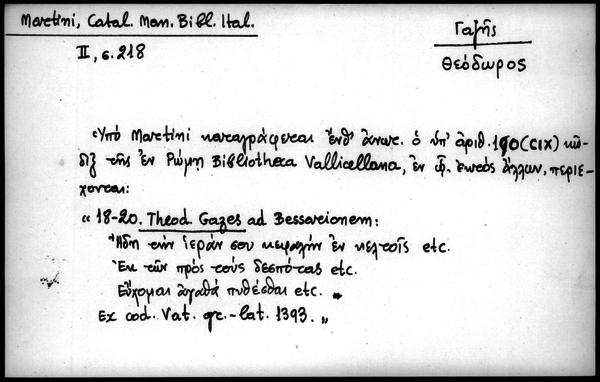 Martini, Catal. Man. Bibl. Ital.
II, σ. 218
Γαζῆς
Θεόδωρος
Ὑπὸ Martini καταγράφεται ἔνθ' ἄνωτ. ὁ ὑπ' ἀριθ. 190 (CIX) κῶ-
διξ τῆς ἐν Ρώμῃ Bibliotheca Vallicellana, ἐν ᾧ, ἐκτὸς ἄλλων, περιέ-
χονται:
« 18-20. Theod. Gazes ad Bessarionem:
Ἤδη τὴν ἱεράν σου κεφαλὴν ἐν κελτοῖς etc.
Ἐκ τῶν πρὸς τοὺς δεσπότας etc.
Εὔχομαι ἀγαθὰ πυθέσθαι etc.
Ex cod. Vat. gr.-lat. 1393. »